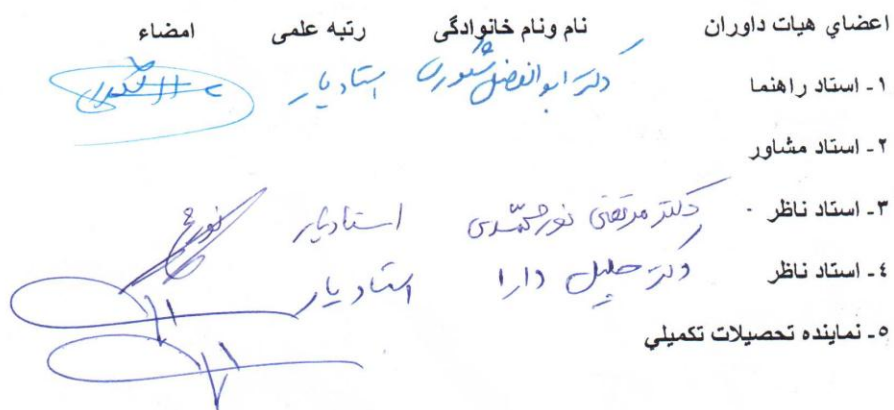 اعضاي هيات داوران نام ونام خانوادگى رتبه علمى امضاء
١- استاد راهنما دكتر ابوالفضل شكورى استاديار
٢- استاد مشاور
٣- استاد ناظر - دكتر مرتضى نورمحمدى استاديار
٤- استاد ناظر دكتر جليل دارا استاديار
٥- نماينده تحصيلات تكميلي